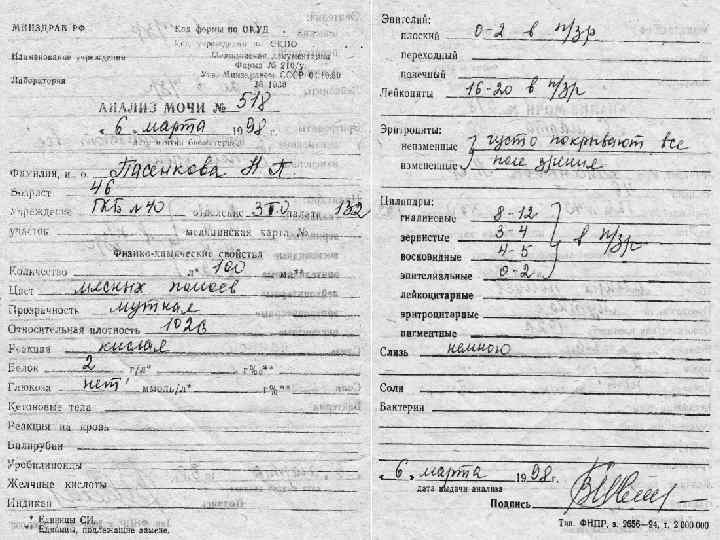 МИНЗДРАВ РФ
Код формы по ОКУД
Код учреждения по ОКПО
Наименование учреждения
Медицинская документация
Форма № 210/у
Лаборатория
Утв. Минздравом СССР 04.10.80
№ 1030
АНАЛИЗ МОЧИ № 518
« 6 » марта 1998 г.
дата взятия биоматериала
Фамилия, и. о. Пасенкова Н. П.
Возраст 46
Учреждение ГКБ №40 отделение 3 Т.О палата 132
участок медицинская карта №
Физико-химические свойства
Количество л* 100 мл**
Цвет мясных помоев
Прозрачность мутная
Относительная плотность 1028
Реакция кислая
Белок 2 г/л* г%**
Глюкоза нет ммоль/л* г%**
Кетоновые тела
Реакция на кровь
Билирубин
Уробилиноиды
Желчные кислоты
Индикан
* Единицы СИ.
** Единицы, подлежащие замене.
Эпителий:
плоский 0-2 в п/зр
переходный
почечный
Лейкоциты 16-20 в п/зр
Эритроциты:
неизменные } густо покрывают все
измененные } поле зрения
Цилиндры:
гиалиновые 8-12
зернистые 3-4 } в п/зр
восковидные 4-5
эпителиальные 0-2
лейкоцитарные
эритроцитарные
пигментные
Слизь немного
Соли
Бактерии
« 6 » марта 1998 г.
дата выдачи анализа
Подпись
Тип. ФНПР, з. 2656—94, т. 2 000 000